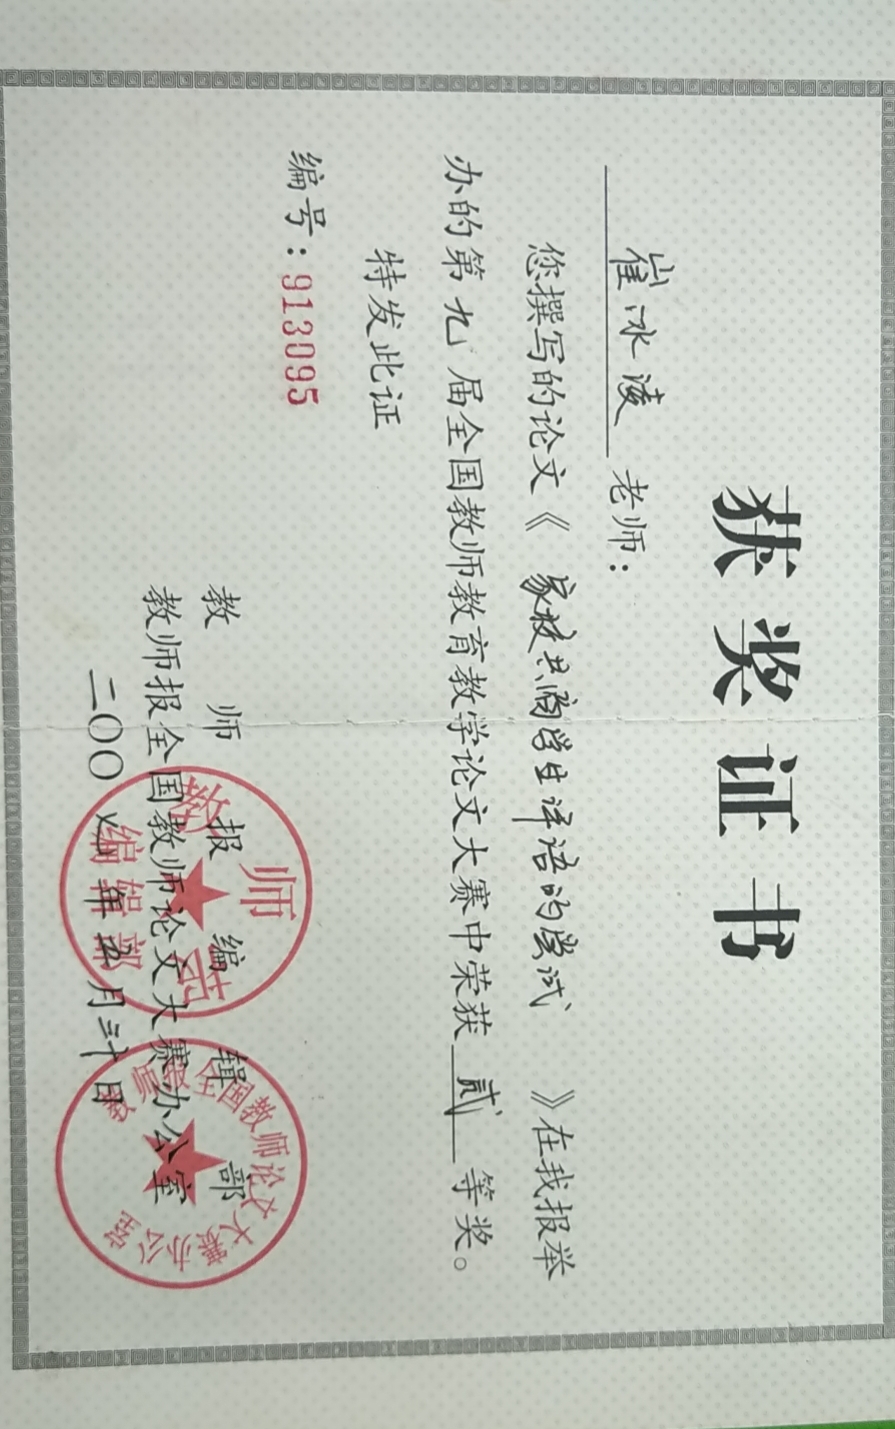 获奖证书
崔冰凌 老师：
您撰写的论文《 家校共商学生评语的尝试 》在我报举
办的第九届全国教师教育教学论文大赛中荣获 贰 等奖。
特发此证
编号：913095
教师报编辑部
教师报全国教师论文大赛办公室
二〇〇八年五月三十日
教师报
编辑部
教师报全国教师论文大赛办公室